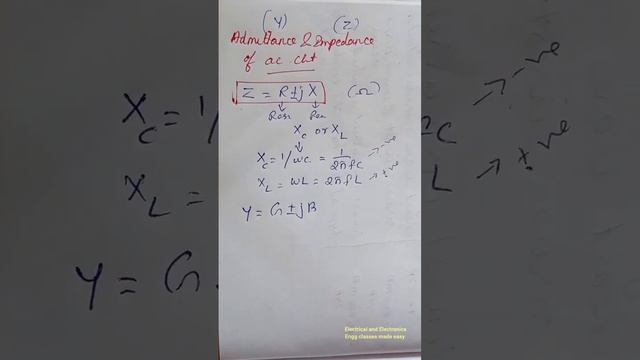 (Y) (Z)
Admittance & Impedance
of ac. ckt
Z = R ± j X (Ω)
Resi Rea
Xc or XL
Xc = 1/ωc = 1/2πfc → -ve
XL = ωL = 2πfL → +ve
Y = G ± jB
Electrical and Electronics
Engg classes made easy